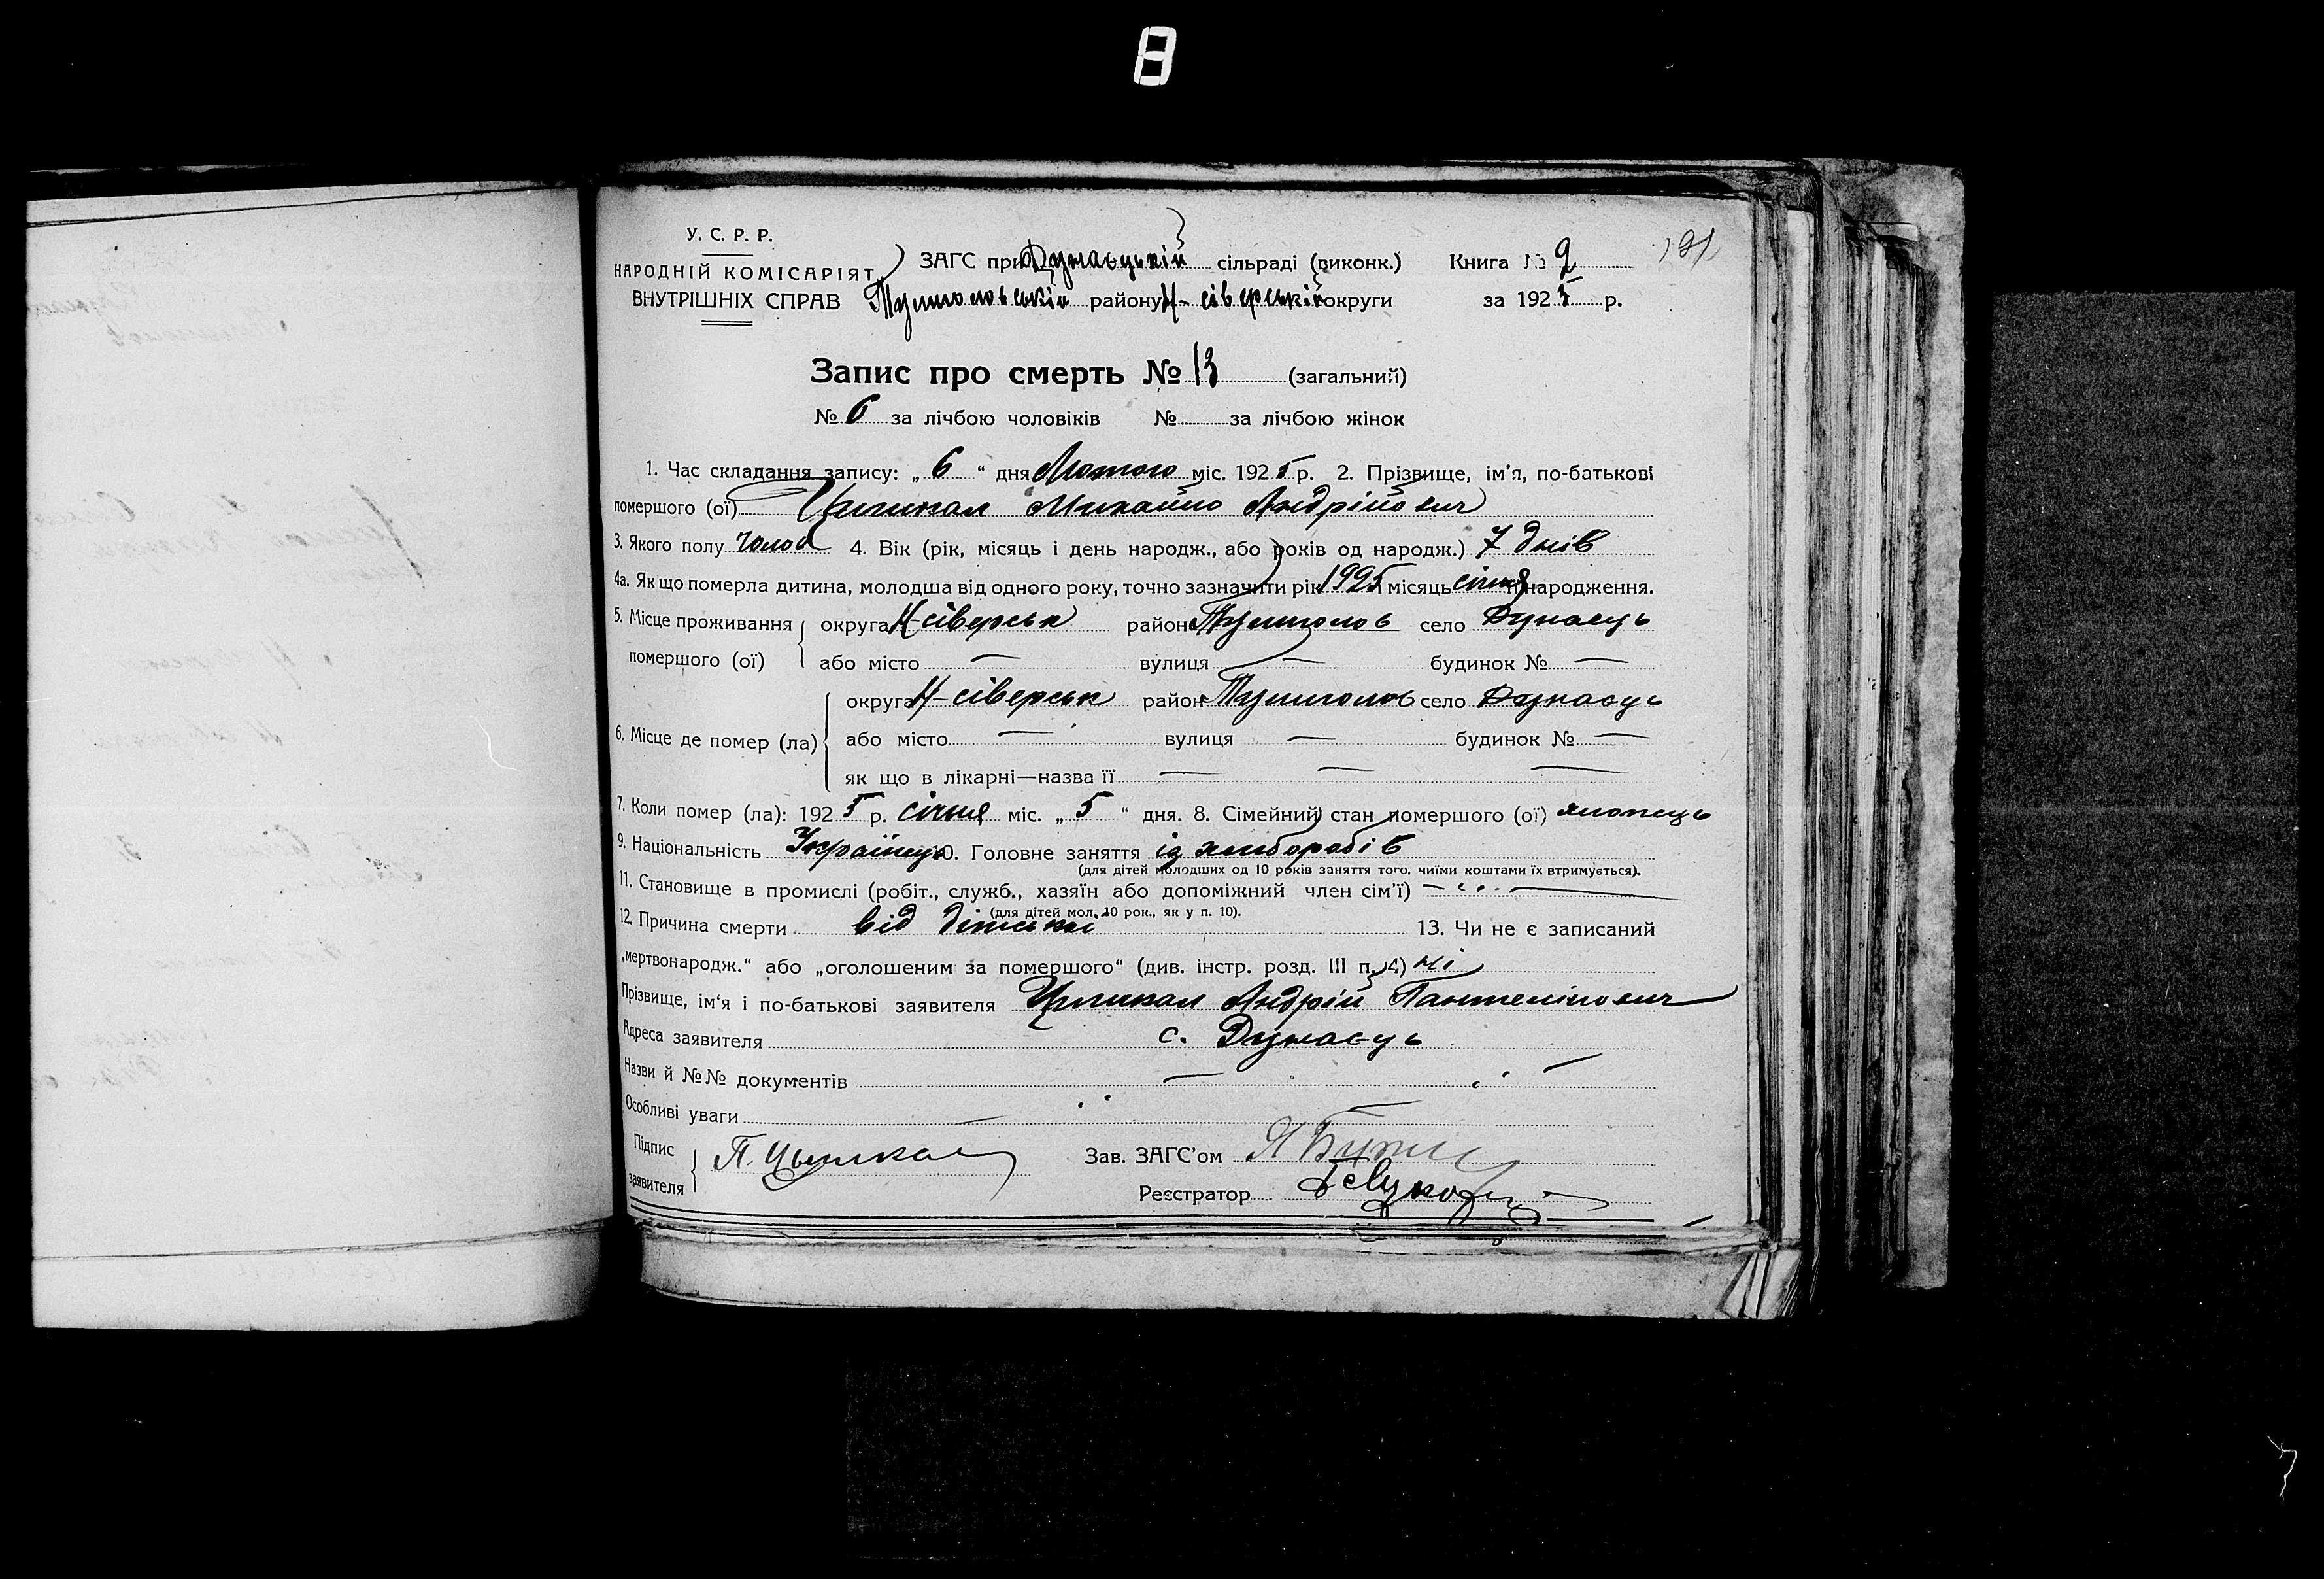 8
У. С. Р. Р.
НАРОДНІЙ КОМІСАРІЯТ
ВНУТРІШНІХ СПРАВ
ЗАГС при Дунаецькій сільраді (виконк.) Книга № 2
191
району Н-сіверській округи за 1925 р.
Запис про смерть № 13 (загальний)
№ 6 за лічбою чоловіків № за лічбою жінок
1. Час складання запису: „ 6 “ дня Лютого міс. 1925 р. 2. Прізвище, ім’я, по-батькові
помершого (ої) Михайло Андрійович
3. Якого полу чолов 4. Вік (рік, місяць і день народж., або років од народж.) 7 днів
4а. Як що померла дитина, молодша від одного року, точно зазначити рік 1925 місяць січня народження.
5. Місце проживання помершого (ої) округа Н-сіверськ район Тулиголов село Дунаець
або місто — вулиця — будинок № —
6. Місце де помер (ла) округа Н-сіверськ район Тулиголов село Дунаець
або місто — вулиця — будинок № —
як що в лікарні—назва її — — —
7. Коли помер (ла): 1925 р. січня міс. „ 5 “ дня. 8. Сімейний стан помершого (ої) хлопець
9. Національність Українець 10. Головне заняття із хліборобів
(для дітей молодших од 10 років заняття того, чиїми коштами їх втримується).
11. Становище в промислі (робіт., служб., хазяїн або допоміжний член сім’ї) —
(для дітей мол. 10 рок., як у п. 10).
12. Причина смерти від 13. Чи не є записаний
„мертвонародж.“ або „оголошеним за помершого“ (див. інстр. розд. III п. 4) ні
Прізвище, ім‘я і по-батькові заявителя Андрій
Адреса заявителя с. Дунаець
Назви й №№ документів — —
Особливі уваги
Підпис заявителя Зав. ЗАГС’ом
Реєстратор